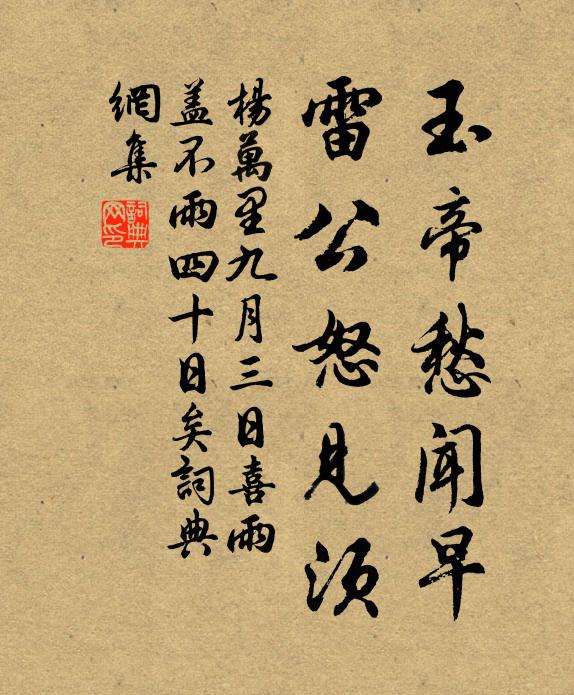 玉帝愁聞早
雷公怒見須
楊萬里九月三日喜雨
盖不雨四十日矣詞典
網集
詞典
网印